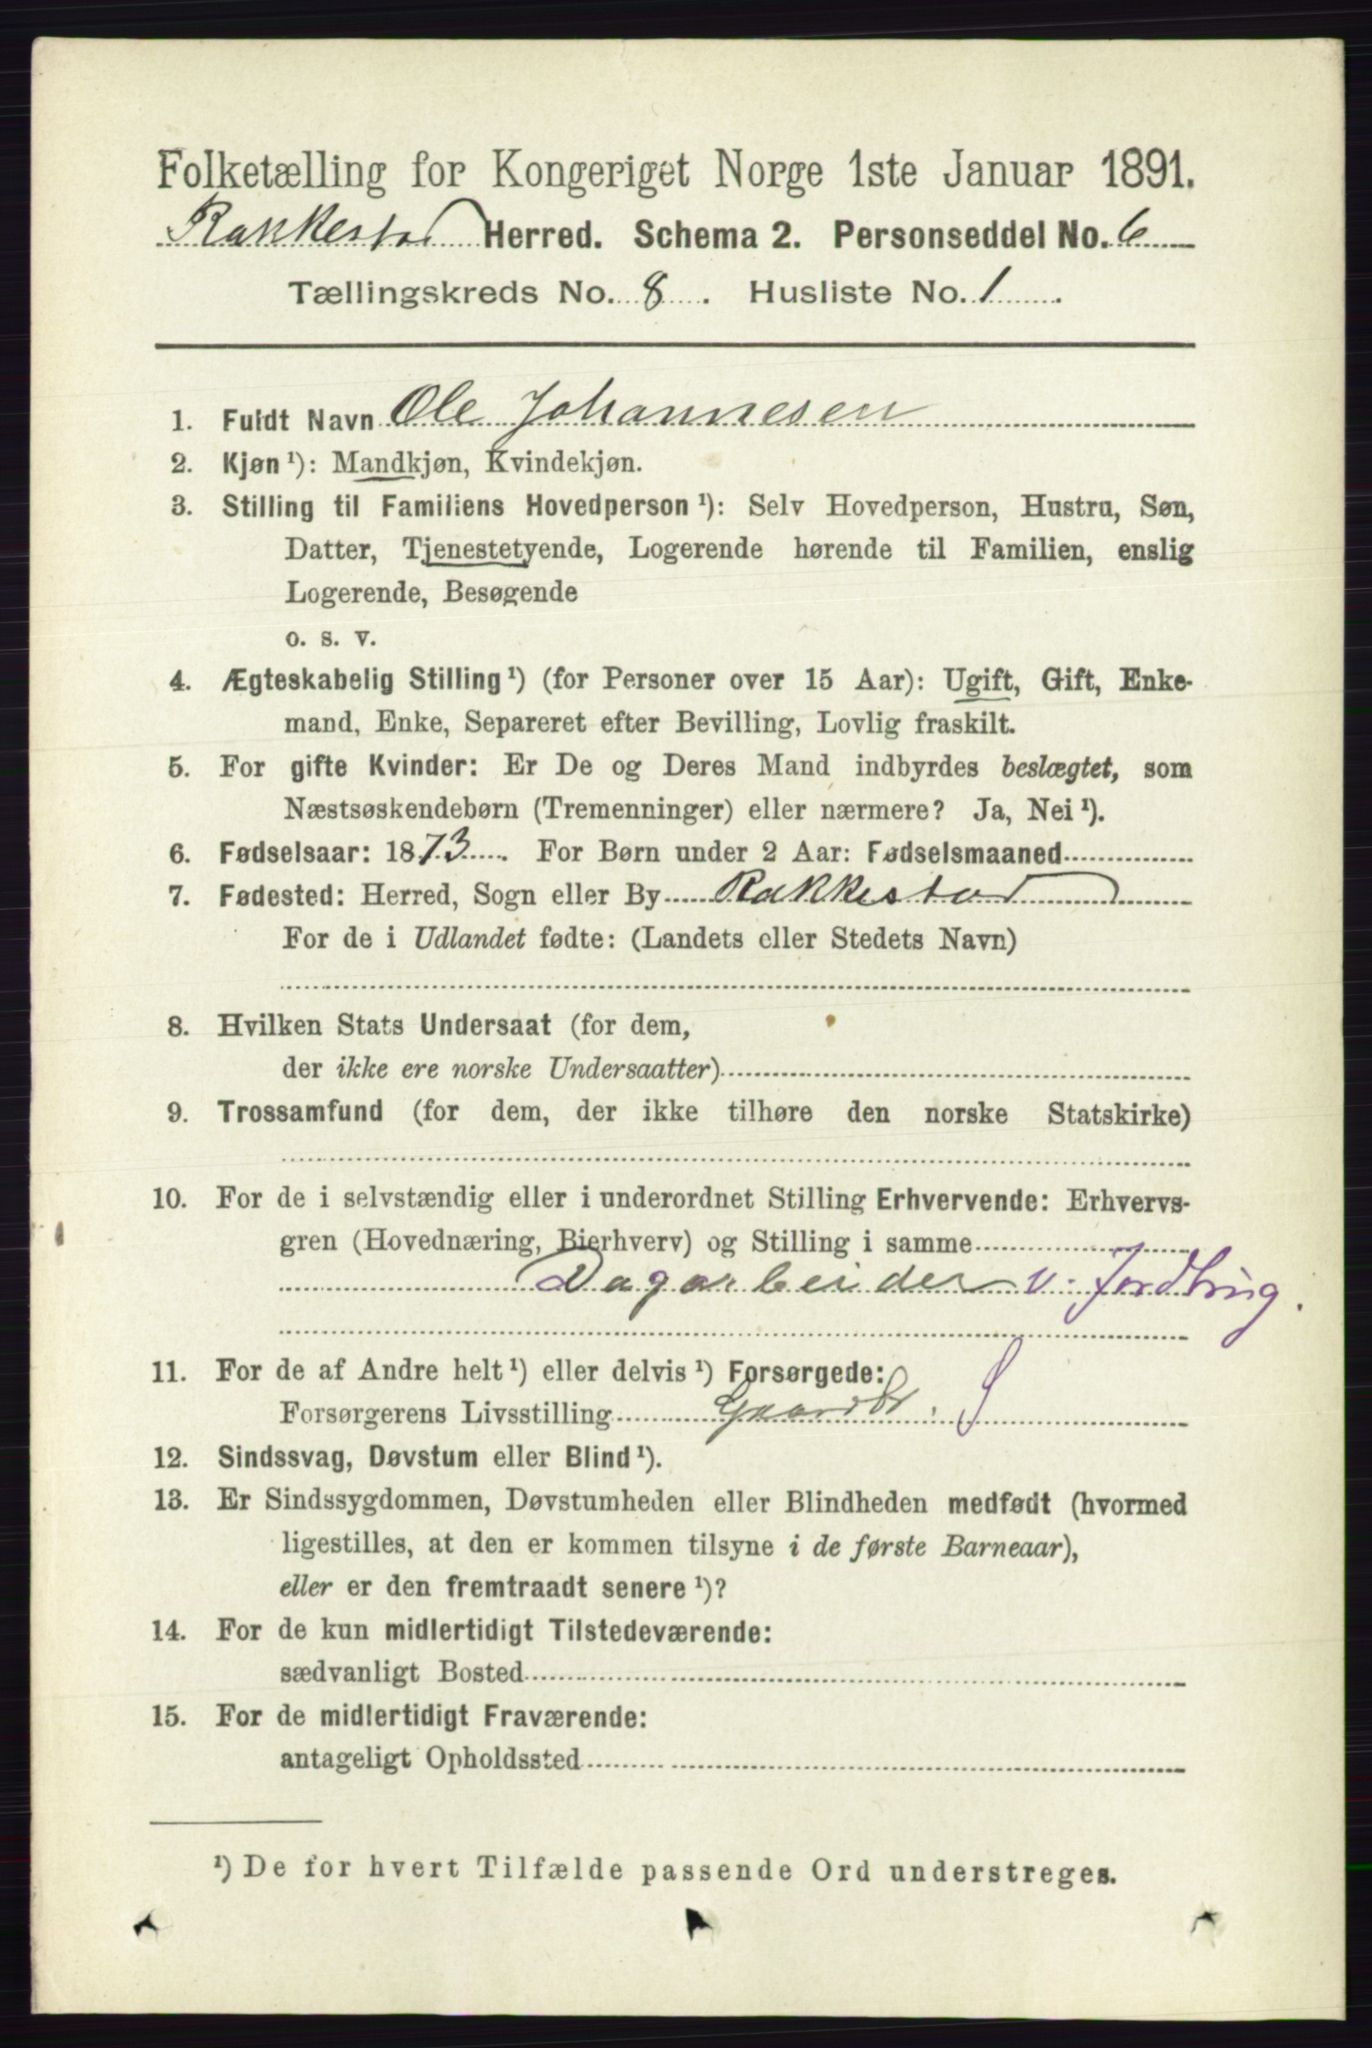 Folketælling for Kongeriget Norge 1ste Januar 1891.
Rakkestad Herred. Schema 2. Personseddel No. 6
Tællingskreds No. 8. Husliste No. 1.
1. Fuldt Navn Ole Johannesen
2. Kjøn¹): Mandkjøn, Kvindekjøn.
3. Stilling til Familiens Hovedperson¹): Selv Hovedperson, Hustru, Søn,
Datter, Tjenestetyende, Logerende hørende til Familien, enslig
Logerende, Besøgende
o. s. v.
4. Ægteskabelig Stilling¹) (for Personer over 15 Aar): Ugift, Gift, Enke-
mand, Enke, Separeret efter Bevilling, Lovlig fraskilt.
5. For gifte Kvinder: Er De og Deres Mand indbyrdes beslægtet, som
Næstsøskendebørn (Tremenninger) eller nærmere? Ja, Nei¹).
6. Fødselsaar: 1873. For Børn under 2 Aar: Fødselsmaaned
7. Fødested: Herred, Sogn eller By Rakkestad
For de i Udlandet fødte: (Landets eller Stedets Navn)
8. Hvilken Stats Undersaat (for dem,
der ikke ere norske Undersaatter)
9. Trossamfund (for dem, der ikke tilhøre den norske Statskirke)
10. For de i selvstændig eller i underordnet Stilling Erhvervende: Erhvervs-
gren (Hovednæring, Bierhverv) og Stilling i samme
Dagarbeider v. Jordbrug.
11. For de af Andre helt¹) eller delvis¹) Forsørgede:
Forsørgerens Livsstilling Gaardbr. S
12. Sindssvag, Døvstum eller Blind¹).
13. Er Sindssygdommen, Døvstumheden eller Blindheden medfødt (hvormed
ligestilles, at den er kommen tilsyne i de første Barneaar),
eller er den fremtraadt senere¹)?
14. For de kun midlertidigt Tilstedeværende:
sædvanligt Bosted
15. For de midlertidigt Fraværende:
antageligt Opholdssted
¹) De for hvert Tilfælde passende Ord understreges.